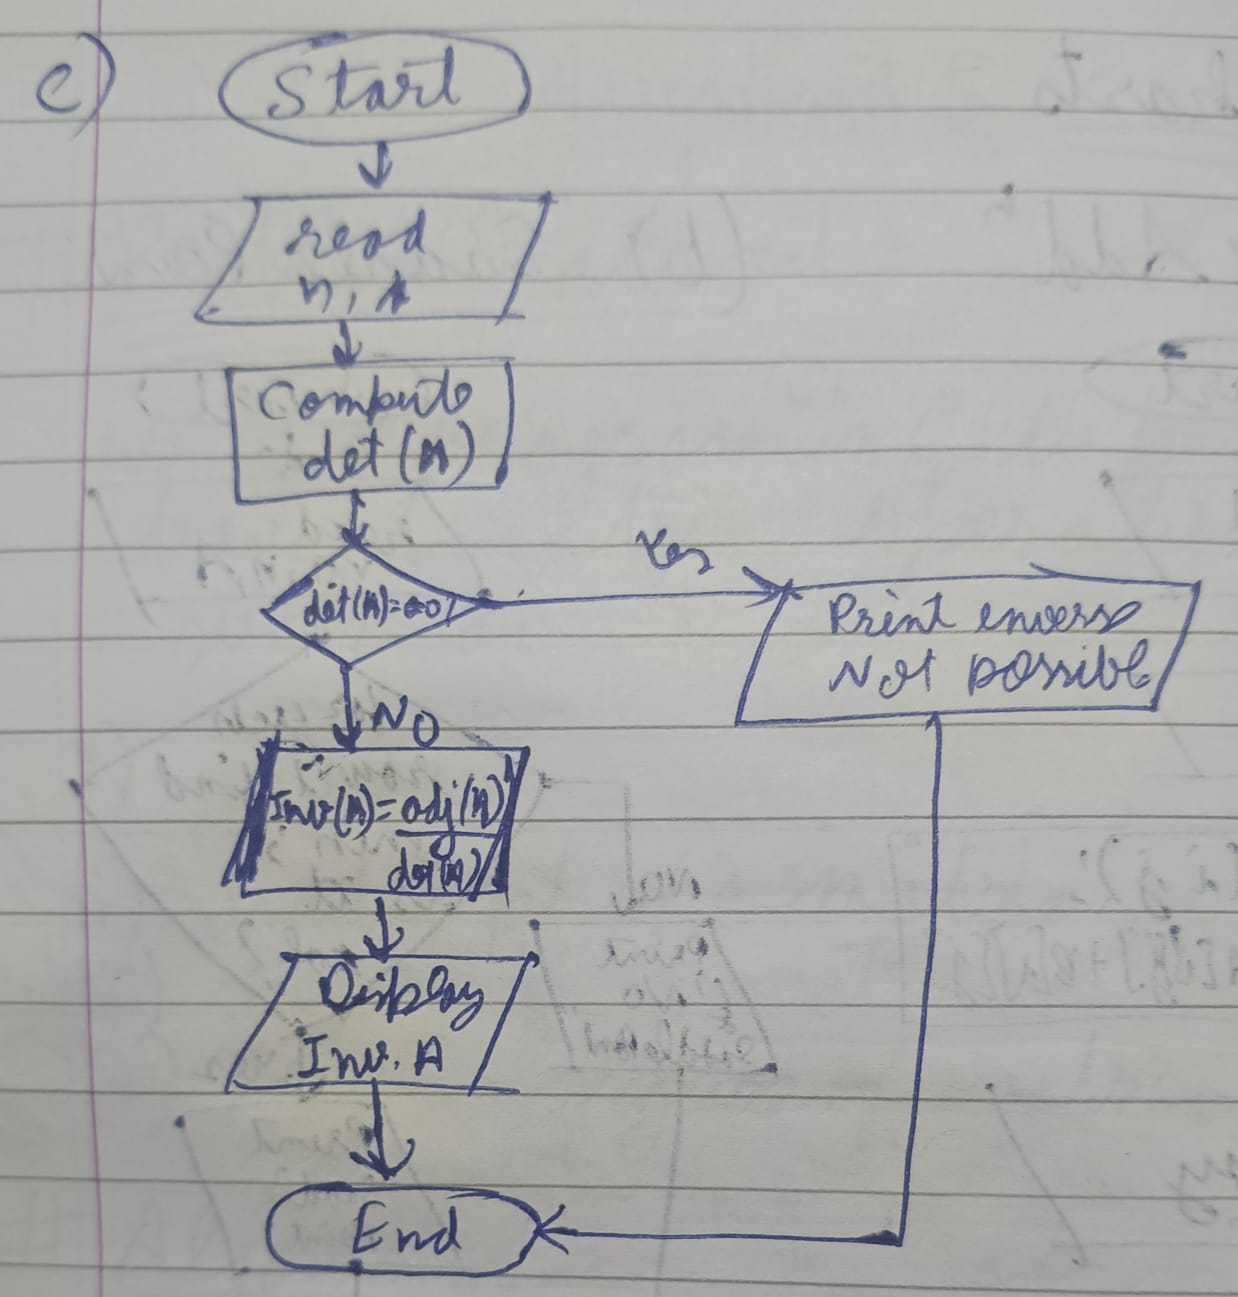 c)
Start
read
n, A
Compute
det (A)
det(A)=0?
Yes
Print envers
Not possible
No
Inv(A)=adj(A)
det(A)
Display
Inv. A
End